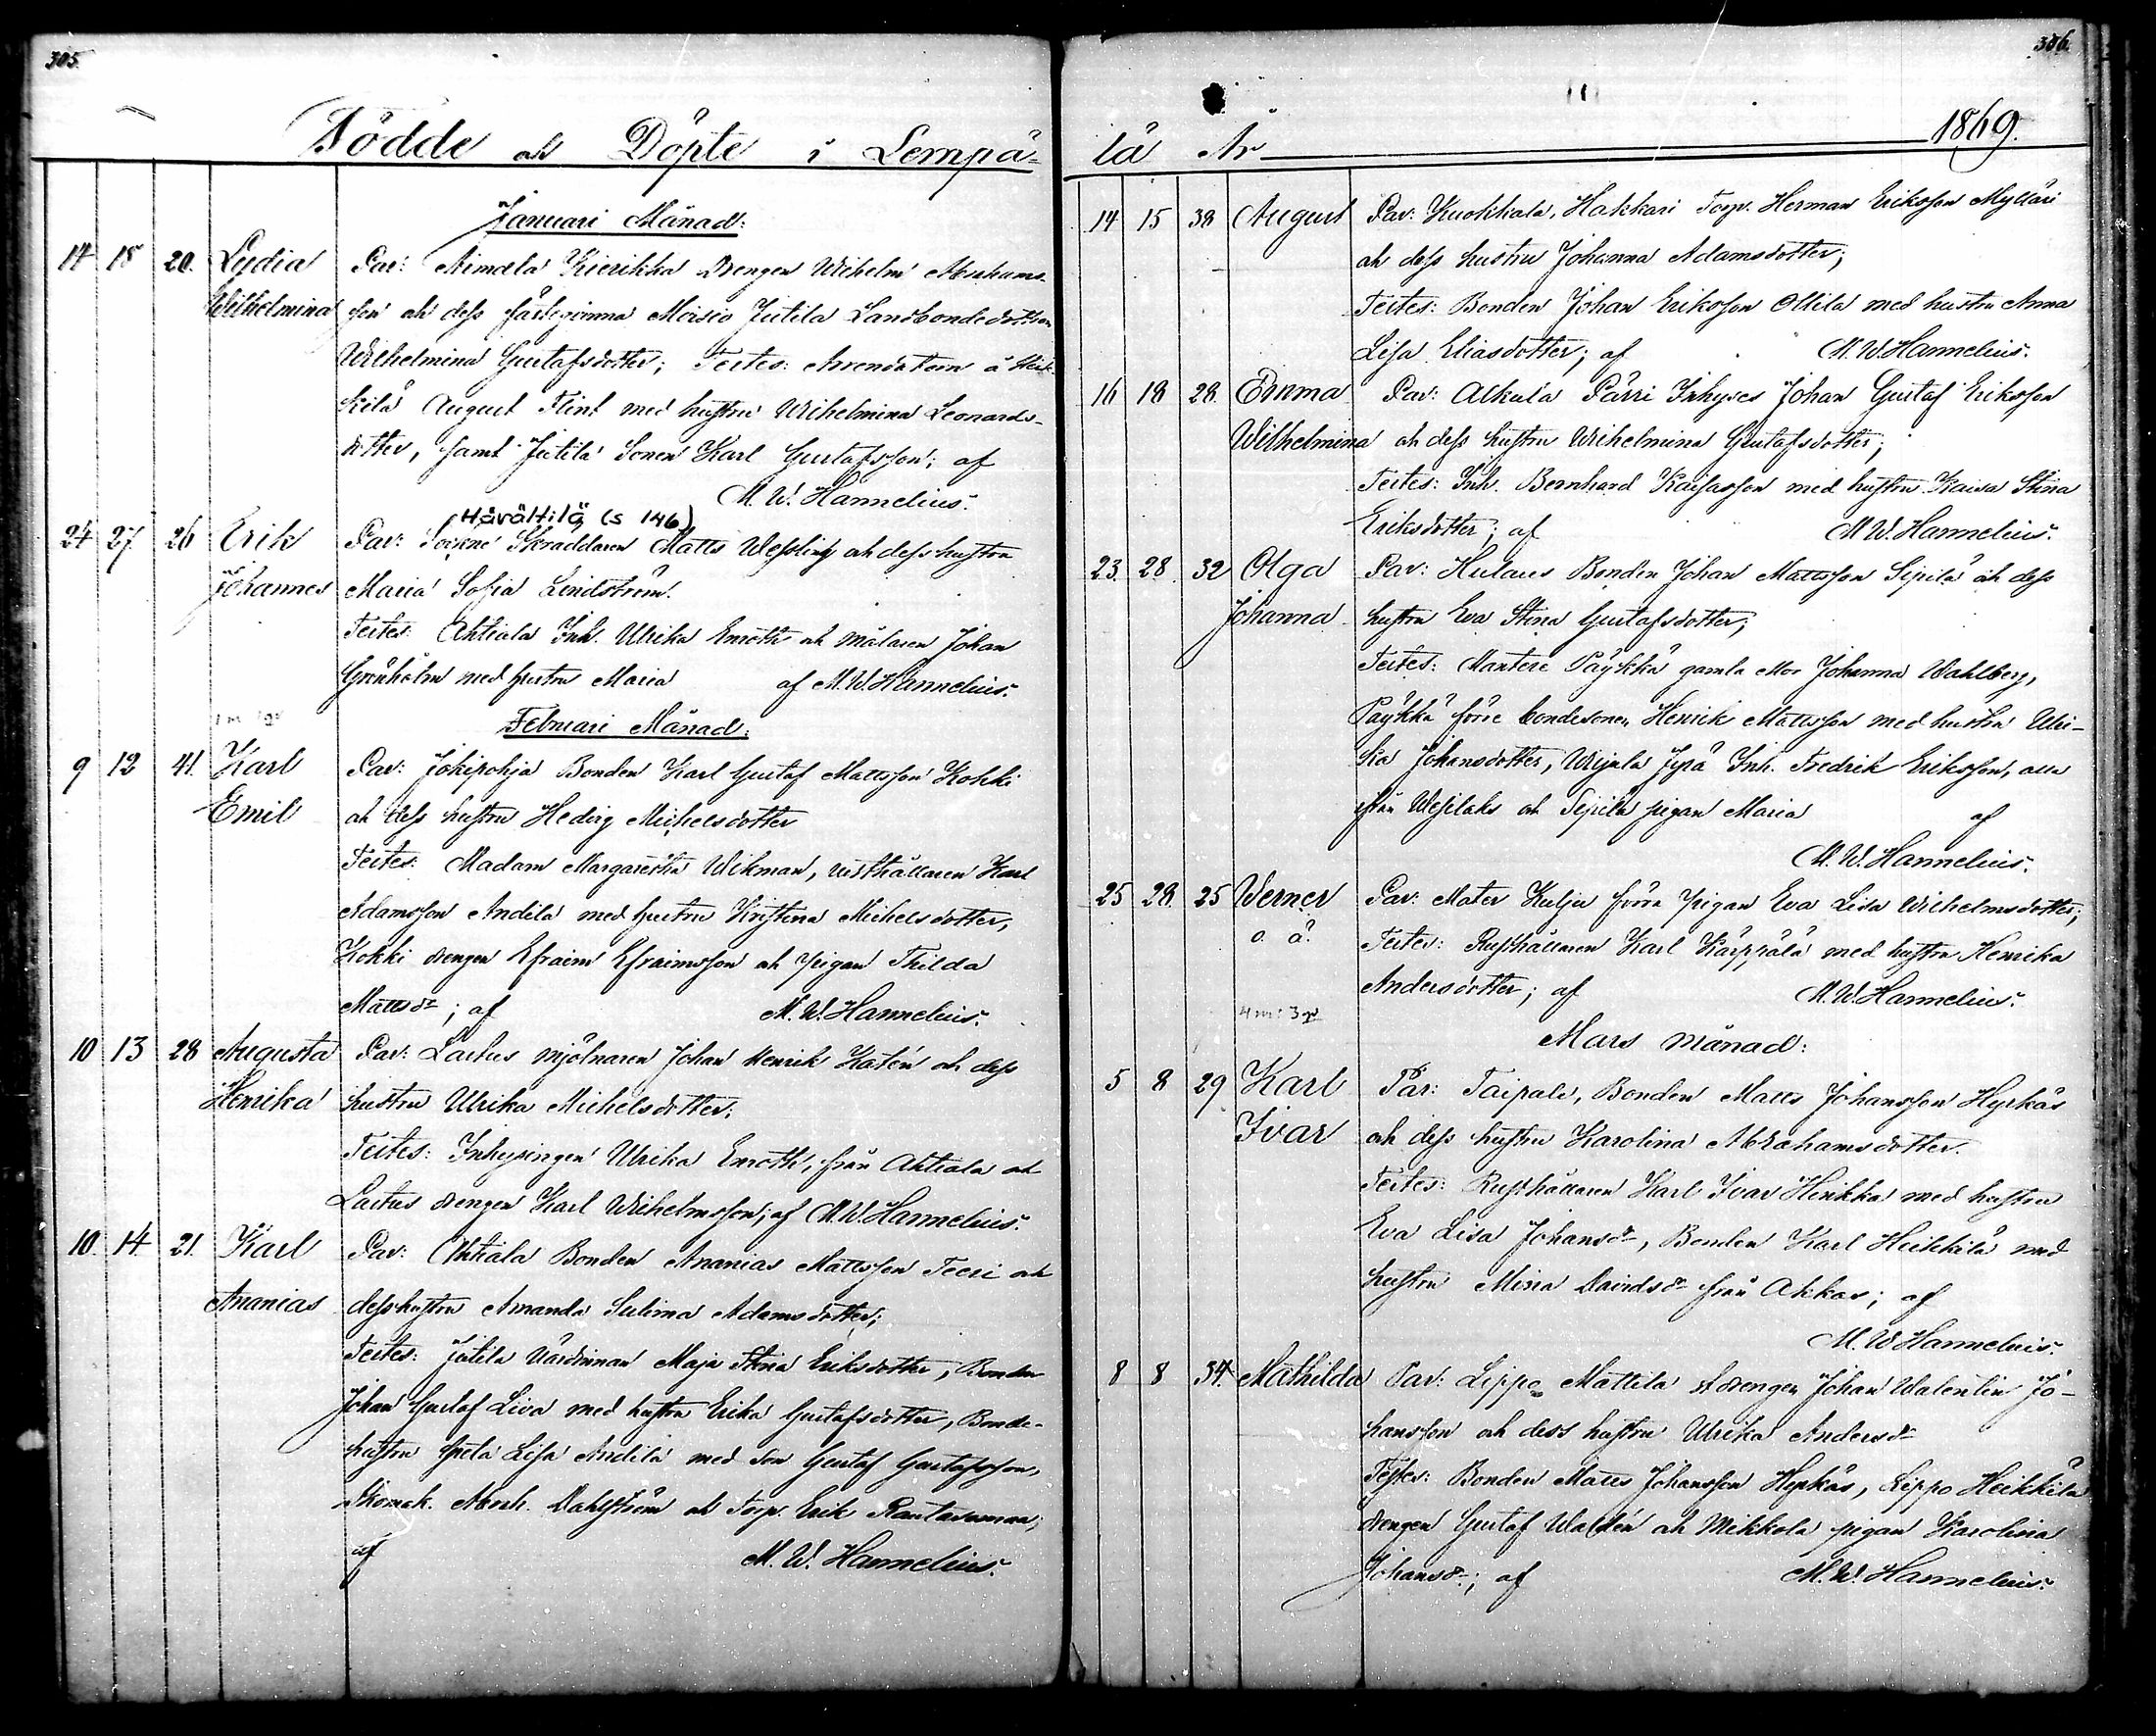 305.
Födde och Döpte i Lempä-
Januari Månad:
14 18 20. Lydia Par: Aimala Kierikka Drengen Wilhelm Abrahams-
Wilhelmina son och dess fästeqvinna Moisio Jutila Landbondedottren
Wilhelmina Gustafsdotter; Testes: Arrendatorn å Heik-
kilä August Flint med hustru Wilhelmina Leonards-
dotter, samt Jutila Sonen Karl Gustafsson; af
M. W. Hannelius.
Håvålltilä (s 146)
24 27 26 Erik Par: Sockne Skräddaren Matts Wessling och dess hustru
Johannes Maria Sofia Lindström.
Testes: Ahtiala Inh. Ulrika Enroth och målaren Johan
Grönholm med hustru Maria af M. W. Hannelius.
Februari Månad:
9 12 41. Karl Par: Jokipohja Bonden Karl Gustaf Mattsson Kokki
Emil och dess hustru Hedvig Michelsdotter
Testes: Madam Margaretha Wikman, rusthållaren Karl
Adamsson Andila med hustru Kristina Michelsdotter,
Kokki drengen Efraim Efraimsson och pigan Thilda
Mattsdr; af M. W. Hannelius.
10 13 28 Augusta Par: Lastus mjölnaren Johan Henrik Katén och dess
Henrika hustru Ulrika Michelsdotter;
Testes: Inhysingen Ulrika Enroth, från Ahtiala och
Lastus drengen Karl Wilhelmsson; af M. W. Hannelius.
10. 14 21. Karl Par: Ahtiala Bonden Ananias Mattsson Teeri och
Ananias dess hustru Amanda Sulima Adamsdotter;
Testes: Jutila Värdinnan Maja Stina Eriksdotter, Bonden
Johan Gustaf Liva med hustru Erika Gustafsdotter, Bonde-
hustru Greta Lisa Andila med son Gustaf Gustafsson,
Skomak. Abrah. Dahlström och Torp. Erik Rantasumaa;
af M. W. Hannelius.
306.
lä År 1869.
14 15 38 August Par: Kuokkala, Hakkari Torp. Herman Eriksson Mylläri
och dess hustru Johanna Adamsdotter;
Testes: Bonden Johan Eriksson Ollila med hustru Anna
Lisa Eliasdotter; af M. W. Hannelius.
16 18 28. Emma Par: Alkula Pärri Inhyses Johan Gustaf Eriksson
Wilhelmina och dess hustru Wilhelmina Gustafsdotter;
Testes: Inh. Bernhard Kaisasson med hustru Kaisa Stina
Eriksdotter; af M. W. Hannelius.
23. 28 32 Olga Par: Hulaus Bonden Johan Mattsson Sipilä och dess
Johanna hustru Eva Stina Gustafsdotter;
Testes: Mantere Päykkä gamla Mor Johanna Wahlberg,
Päykkä förre bondesonen Henrik Mattsson med hustru Ulri-
ka Johansdotter, Wijala Jyrä Inh. Fredrik Eriksson, alla
från Wesilaks och Sipilä pigan Maria af
M. W. Hannelius.
25 28. 25 Werner Par: Mater Kulju förra Pigan Eva Lisa Wilhelmsdotter;
o. ä. Testes: Rusthållaren Karl Kärppälä med hustru Henrika
Andersdotter; af M. W. Hannelius.
Mars månad:
5 8 29 Karl Par: Taipale, Bonden Matts Johansson Hyrkäs
Ivar och dess hustru Karolina Abrahamsdotter.
Testes: Rusthållaren Karl Ivar Hinkka med hustru
Eva Lisa Johansdr, Bonden Karl Heikkilä med
hustru Mina Davidsdr från Akkas; af
M. W. Hannelius.
8 8 34. Mathilda Par: Lippo Mattila drengen Johan Walentin Jo-
hansson och dess hustru Ulrika Andersdr
Testes: Bonden Matts Johansson Hyrkäs, Lippo Heikkilä
drengen Gustaf Waldén och Mikkola pigan Karolina
Johansdr; af M. W. Hannelius.